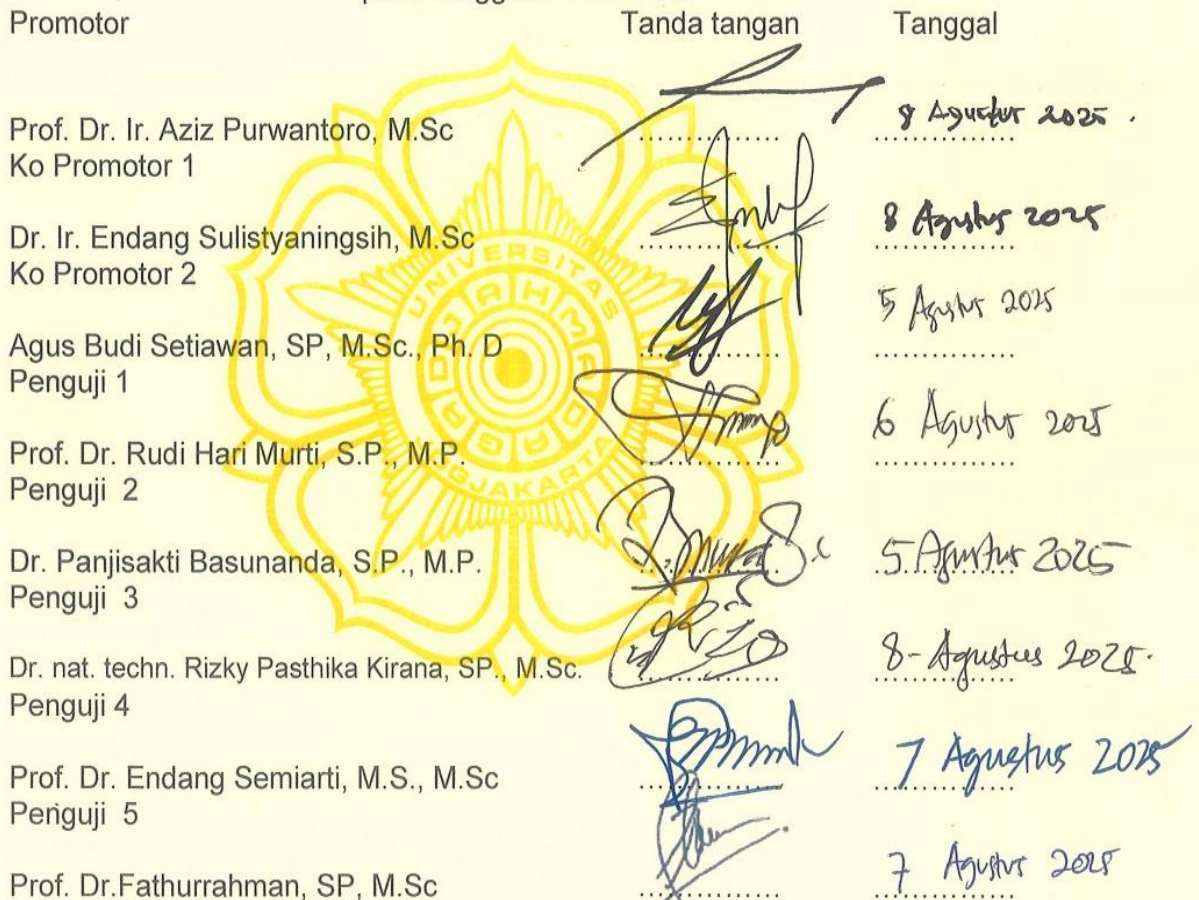 Promotor Tanda tangan Tanggal
Prof. Dr. Ir. Aziz Purwantoro, M.Sc ............... 8 Agustus 2025 .
Ko Promotor 1
Dr. Ir. Endang Sulistyaningsih, M.Sc ............... 8 Agustus 2025
Ko Promotor 2
Agus Budi Setiawan, SP, M.Sc., Ph. D ............... 5 Agustus 2025
Penguji 1
Prof. Dr. Rudi Hari Murti, S.P., M.P. ............... 6 Agustus 2025
Penguji 2
Dr. Panjisakti Basunanda, S.P., M.P. ............... 5 Agustus 2025
Penguji 3
Dr. nat. techn. Rizky Pasthika Kirana, SP., M.Sc. ............... 8-Agustus 2025.
Penguji 4
Prof. Dr. Endang Semiarti, M.S., M.Sc ............... 7 Agustus 2025
Penguji 5
Prof. Dr.Fathurrahman, SP, M.Sc ............... 7 Agustus 2025
UNIVERSITAS
GADJAH MADA